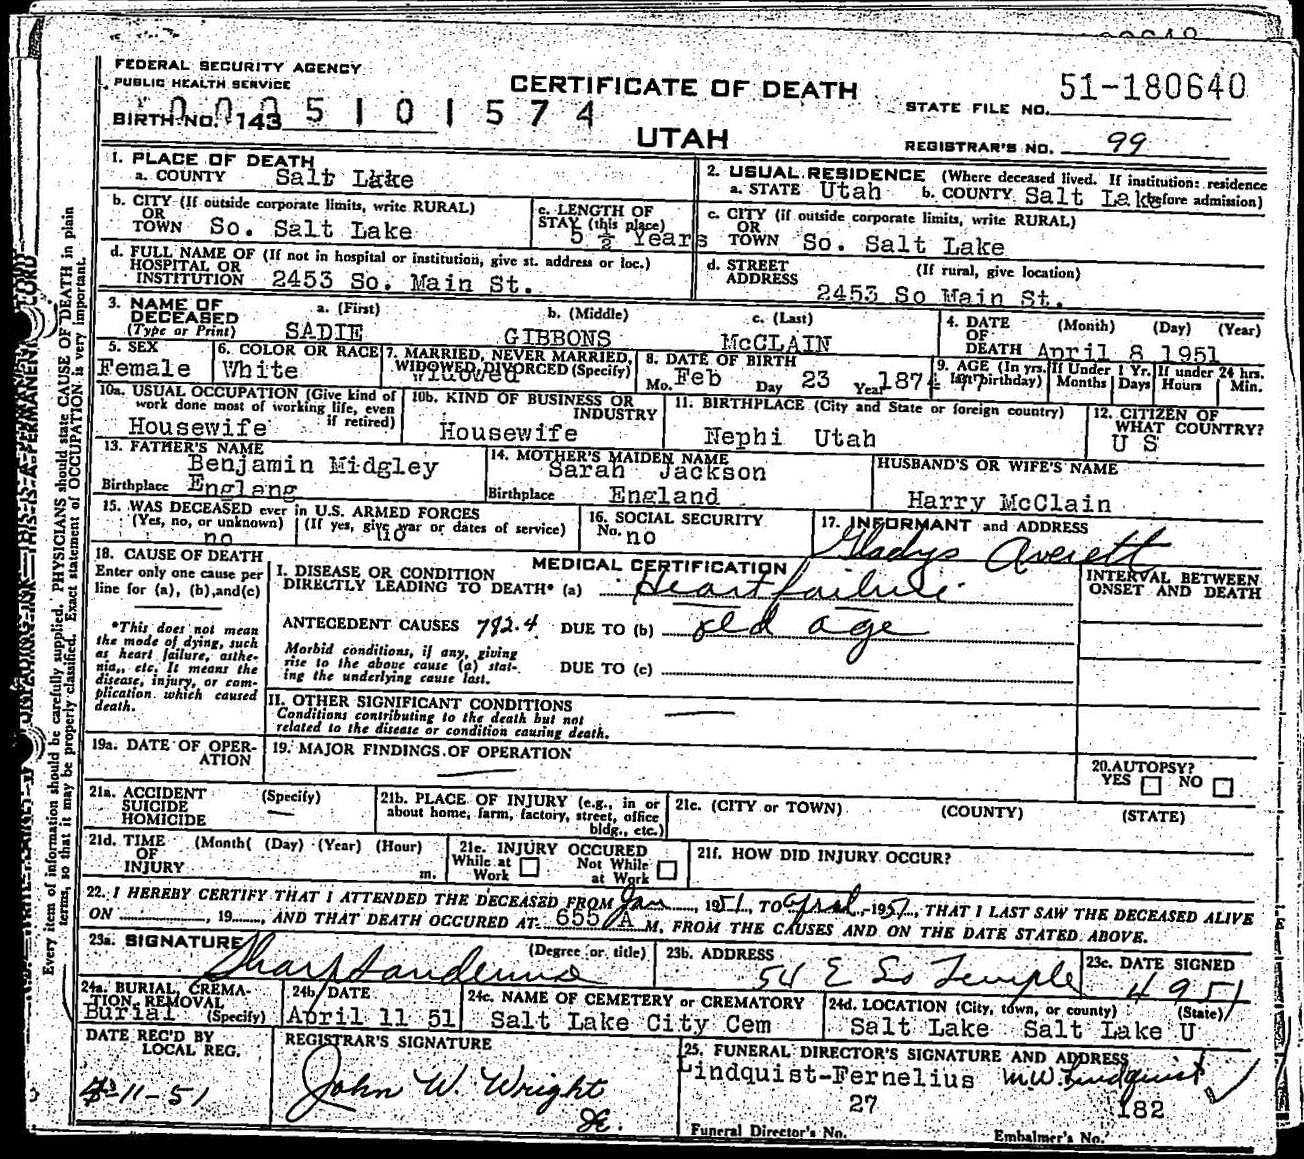 FEDERAL SECURITY AGENCY
PUBLIC HEALTH SERVICE
CERTIFICATE OF DEATH
STATE FILE NO. 51-180640
BIRTH NO. 143 0005101574
UTAH
REGISTRAR'S NO. 99
1. PLACE OF DEATH
a. COUNTY Salt Lake
2. USUAL RESIDENCE (Where deceased lived. If institution: residence before admission)
a. STATE Utah b. COUNTY Salt Lake
b. CITY (If outside corporate limits, write RURAL)
OR
TOWN So. Salt Lake
c. LENGTH OF
STAY (this place)
5 ½ Years
c. CITY (if outside corporate limits, write RURAL)
OR
TOWN So. Salt Lake
d. FULL NAME OF (If not in hospital or institution, give st. address or loc.)
HOSPITAL OR
INSTITUTION 2453 So. Main St.
d. STREET
ADDRESS
(If rural, give location)
2453 So Main St.
3. NAME OF
DECEASED
(Type or Print)
a. (First)
SADIE
b. (Middle)
GIBBONS
c. (Last)
McCLAIN
4. DATE
OF
DEATH
(Month) (Day) (Year)
April 8 1951
5. SEX
Female
6. COLOR OR RACE
White
7. MARRIED, NEVER MARRIED,
WIDOWED, DIVORCED (Specify)
Widowed
8. DATE OF BIRTH
Mo. Feb Day 23 Year 1874
9. AGE (In yrs.
last birthday)
If Under 1 Yr.
Months Days
If under 24 hrs.
Hours Min.
10a. USUAL OCCUPATION (Give kind of
work done most of working life, even
if retired)
Housewife
10b. KIND OF BUSINESS OR
INDUSTRY
Housewife
11. BIRTHPLACE (City and State or foreign country)
Nephi Utah
12. CITIZEN OF
WHAT COUNTRY?
U S
13. FATHER'S NAME
Benjamin Midgley
Birthplace Englang
14. MOTHER'S MAIDEN NAME
Sarah Jackson
Birthplace England
HUSBAND'S OR WIFE'S NAME
Harry McClain
15. WAS DECEASED ever in U.S. ARMED FORCES
(Yes, no, or unknown) (If yes, give war or dates of service)
no no
16. SOCIAL SECURITY
No. no
17. INFORMANT and ADDRESS
Gladys Averett
18. CAUSE OF DEATH
Enter only one cause per
line for (a), (b), and (c)
*This does not mean
the mode of dying, such
as heart failure, asthe-
nia, etc. It means the
disease, injury, or com-
plication which caused
death.
MEDICAL CERTIFICATION
I. DISEASE OR CONDITION
DIRECTLY LEADING TO DEATH* (a) Heart failure
INTERVAL BETWEEN
ONSET AND DEATH
ANTECEDENT CAUSES 792.4 DUE TO (b) old age
Morbid conditions, if any, giving
rise to the above cause (a) stat-
ing the underlying cause last.
DUE TO (c)
II. OTHER SIGNIFICANT CONDITIONS
Conditions contributing to the death but not
related to the disease or condition causing death.
19a. DATE OF OPER-
ATION
19. MAJOR FINDINGS OF OPERATION
20. AUTOPSY?
YES NO
21a. ACCIDENT
SUICIDE
HOMICIDE
(Specify)
21b. PLACE OF INJURY (e.g., in or
about home, farm, factory, street, office
bldg., etc.)
21c. (CITY or TOWN) (COUNTY) (STATE)
21d. TIME
OF
INJURY
(Month( (Day) (Year) (Hour)
m.
21e. INJURY OCCURED
While at
Work
Not While
at Work
21f. HOW DID INJURY OCCUR?
22. I HEREBY CERTIFY THAT I ATTENDED THE DECEASED FROM Jan, 1951, TO April, 1951, THAT I LAST SAW THE DECEASED ALIVE
ON, 19, AND THAT DEATH OCCURED AT 655 A M, FROM THE CAUSES AND ON THE DATE STATED ABOVE.
23a. SIGNATURE (Degree or title)
23b. ADDRESS
54 E So Temple
23c. DATE SIGNED
4 9 51
24a. BURIAL, CREMA-
TION, REMOVAL
Burial (Specify)
24b. DATE
April 11 51
24c. NAME OF CEMETERY or CREMATORY
Salt Lake City Cem
24d. LOCATION (City, town, or county) (State)
Salt Lake Salt Lake U
DATE REC'D BY
LOCAL REG.
4-11-51
REGISTRAR'S SIGNATURE
John W. Wright
25. FUNERAL DIRECTOR'S SIGNATURE AND ADDRESS
Lindquist-Fernelius M.W. Lindquist
27 182
Funeral Director's No. Embalmer's No.
Every item of information should be carefully supplied. PHYSICIANS should state CAUSE OF DEATH in plain
terms, so that it may be properly classified. Exact statement of OCCUPATION is very important.